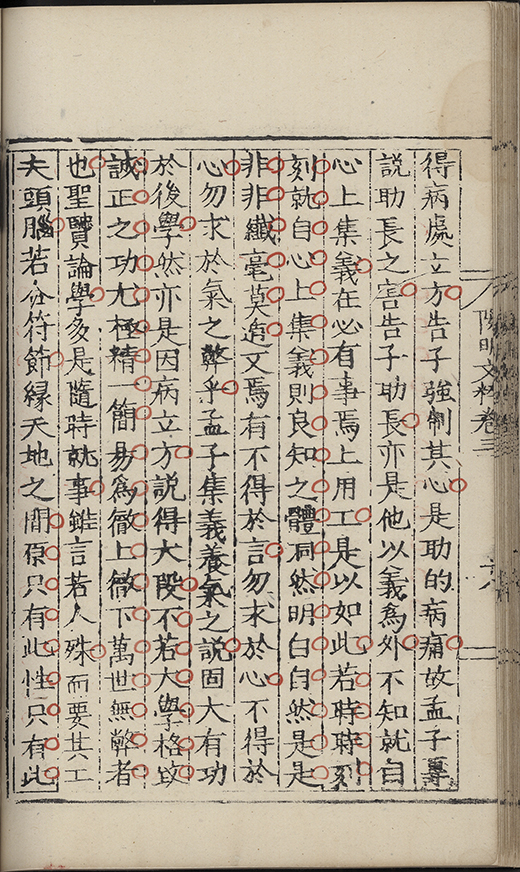 陽明文粹卷三
得病處立方告子強制其心是助的病痛故孟子專
說助長之害告子助長亦是他以義為外不知就自
心上集義在必有事焉上用工是以如此若時時刻
刻就自心上集義則良知之體洞然明白自然是是
非非纖毫莫遁又焉有不得於言勿求於心不得於
心勿求於氣之弊乎孟子集義養氣之說固大有功
於後學然亦是因病立方說得大段不若大學格致
誠正之功尤極精一簡易為徹上徹下萬世無弊者
也聖賢論學多是隨時就事雖言若人殊而要其工
夫頭腦若合符節緣天地之間原只有此性只有此